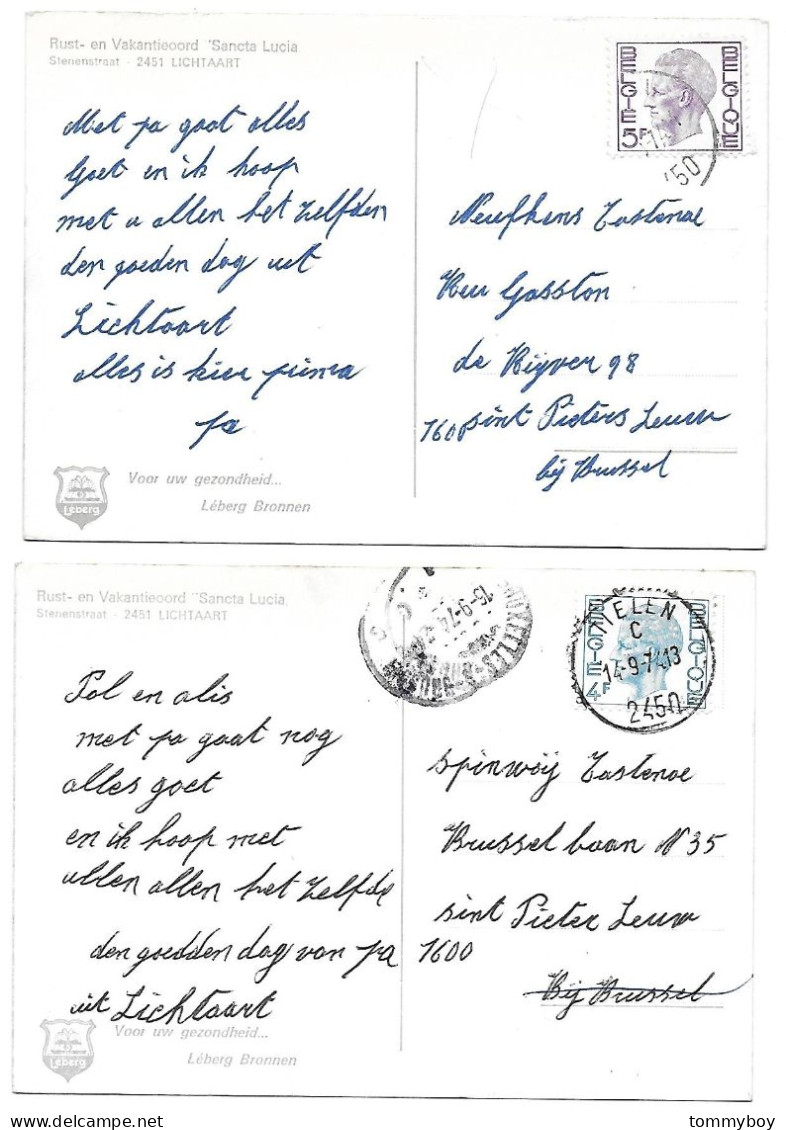 Rust- en Vakantieoord "Sancta Lucia
Sterrenstraat - 2451 LICHTAART
BELGIE BELGIQUE
5F
2450
Met pa gaat alles
Goet en ik hoop
met u allen het zelfden
den goeden dag uit
Lichtaart
alles is hier prima
pa
Tastenoe
Gasston
98
1600 sint Pieters Leeuw
bij Brussel
Voor uw gezondheid...
Léberg Bronnen
Léberg
Rust- en Vakantieoord "Sancta Lucia,
Sterrenstraat - 2451 LICHTAART
15-9-74
BELGIE BELGIQUE
4F
TIELEN
C
14-9-74 13
2450
Pol en alis
met pa gaat nog
alles goet
en ik hoop met
ullen allen het zelfde
den goedden dag van pa
uit Lichtaart
spinwij Tastenoe
Brussel baan N 35
sint Pieter Leuw
1600
Bij Brussel
Voor uw gezondheid...
Léberg Bronnen
Léberg
tommyboy